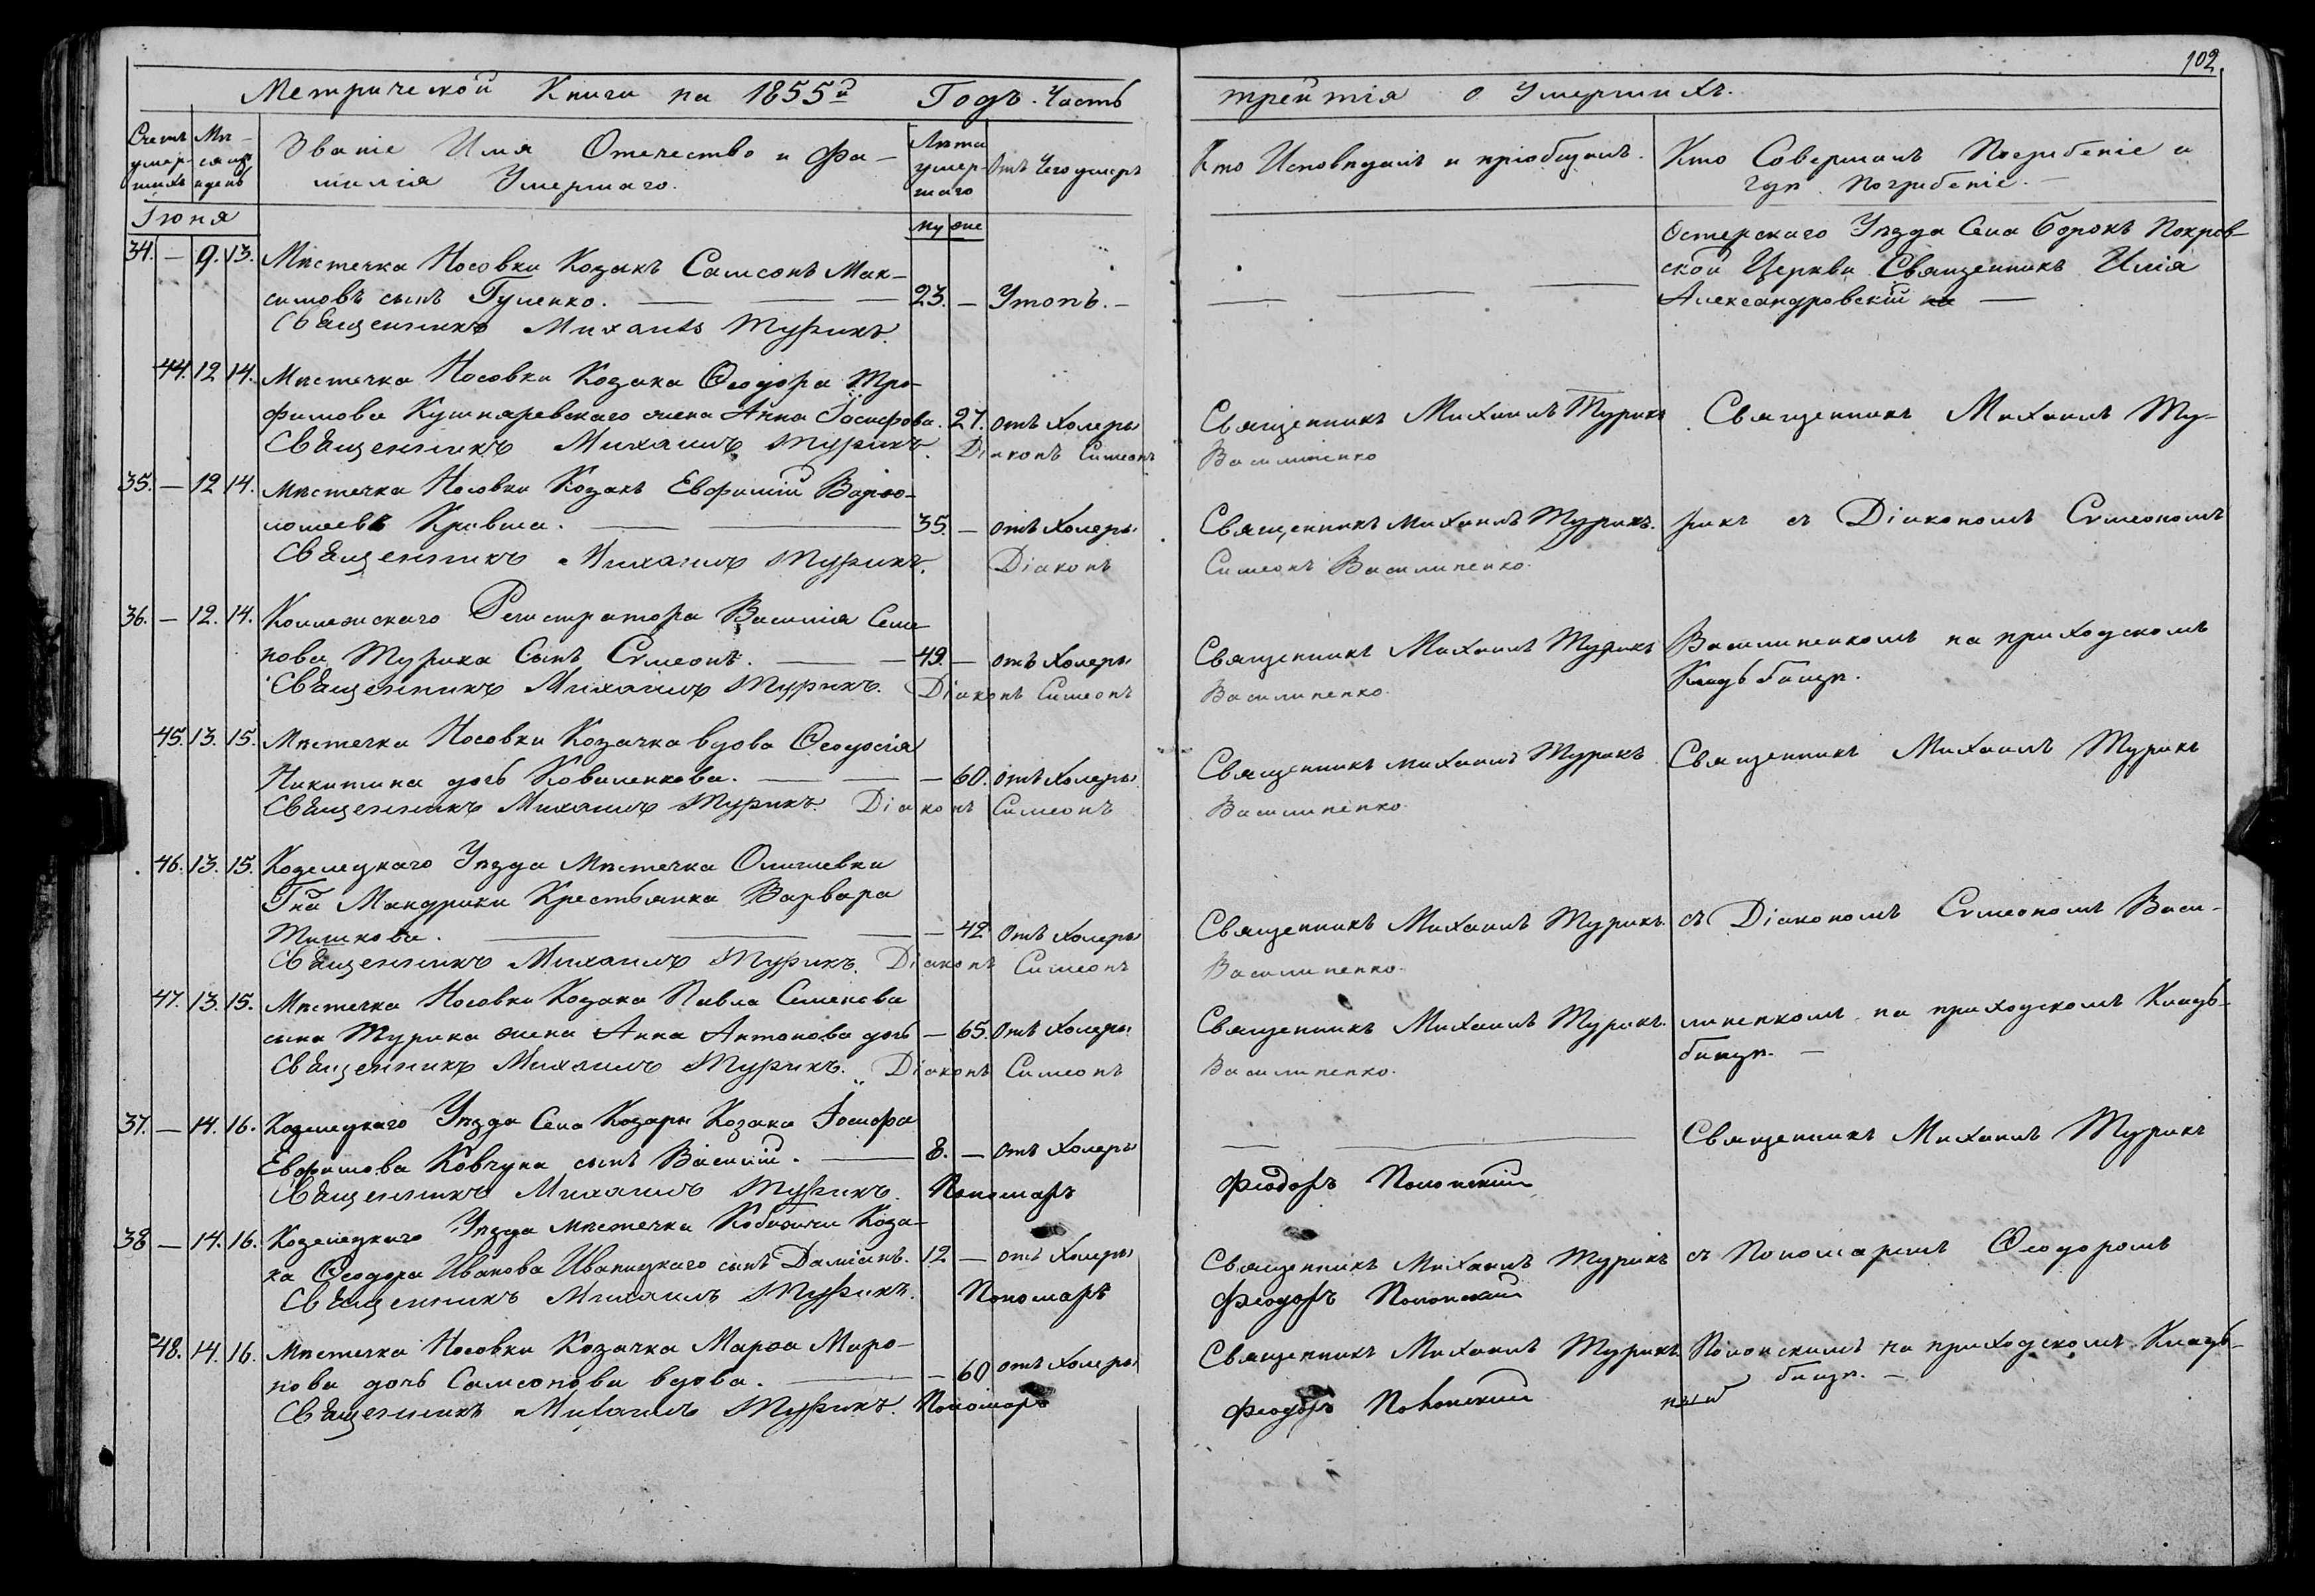 102.
Метрической Книги на 1855й Годъ. Часть
третiя о Умершихъ.
Счетъ умер-шихъ
Мѣ-сяцъ и день
Званіе Имя Отечество и Фа-
милія Умершаго.
Лѣта умер-шаго
Отъ Чего умеръ
Кто Исповѣдалъ и пріобщалъ.
Кто Совершалъ Погребеніе и
гдѣ Погребеніе. —
Іюня
му же
34. — 9. 13. Мѣстечка Носовки Козакъ Самсонъ Мак-
симовъ сынъ Гуленко. — 23. — Утопъ. —
Священникъ Михаилъ Турикъ.
Остерскаго Уѣзда Села Борокъ Покров-
ской Церкви Священникъ Илія
Александровскій —
44. 12 14. Мѣстечка Носовки Козака Ѳеодора Тро-
фимова Кушнаревскаго жена Анна Іосифова. 27. отъ Холеры
Священникъ Михаилъ Турикъ. Діаконъ Симеонъ
Священникъ Михаилъ Турикъ
Василипенко
Священникъ Михаилъ Ту-
35. — 12 14. Мѣстечка Носовки Козакъ Евфимій Варѳо-
ломеевъ Кривша. — 35. — отъ Холеры
Священникъ Михаилъ Турикъ. Діаконъ
Священникъ Михаилъ Турикъ.
Симеонъ Василипенко.
рикъ съ Діакономъ Сѵмеономъ
36. — 12. 14. Коллежскаго Регистратора Василія Семе-
нова Турика Сынъ Сѵмеонъ. — 49. — отъ Холеры
Священникъ Михаилъ Турикъ. Діаконъ Симеонъ
Священникъ Михаилъ Турикъ
Василипенко.
Василипенкомъ на приходскомъ
Кладбищѣ.
45. 13. 15. Мѣстечка Носовки Козачка вдова Ѳеодосія
Никитина дочь Коваленкова. — 60. отъ Холеры
Священникъ Михаилъ Турикъ. Діаконъ Симеонъ
Священникъ Михаилъ Турикъ
Василипенко.
Священникъ Михаилъ Турикъ
46. 13. 15. Козелецкаго Уѣзда Мѣстечка Олишевки
Гна Мандрики Крестьянка Варвара
Тишкова. — 42 отъ Холеры
Священникъ Михаилъ Турикъ. Діаконъ Симеонъ
Священникъ Михаилъ Турикъ.
Василипенко.
съ Діакономъ Сѵмеономъ Васи-
47. 13. 15. Мѣстечка Носовки Козака Павла Семенова
сына Турика жена Анна Антонова дочь — 65. отъ Холеры
Священникъ Михаилъ Турикъ. Діаконъ Симеонъ
Священникъ Михаилъ Турикъ.
Василипенко.
липенкомъ на приходскомъ Кладь-
бищѣ. —
37. — 14. 16. Козелецкаго Уѣзда Села Козары Козака Іосифа
Евфимова Ковчуна сынъ Василій. — 8. — отъ Холеры
Священникъ Михаилъ Турикъ. Пономарь
Феодоръ Полонскій
Священникъ Михаилъ Турикъ
38 — 14. 16. Козелецкаго Уѣзда мѣстечка Кобижчи Коза-
ка Ѳеодора Иванова Иваницкаго сынъ Даміанъ. 12 — отъ Холеры
Священникъ Михаилъ Турикъ. Пономарь
Священникъ Михаилъ Турикъ
Феодоръ Полонскій
съ Пономаремъ Ѳеодоромъ
48. 14. 16. Мѣстечка Носовки Козачка Марѳа Миро-
нова дочь Самсонова вдова. — 60 отъ Холеры
Священникъ Михаилъ Турикъ. Пономарь
Священникъ Михаилъ Турикъ
Феодоръ Полонскій
Полонскимъ на приходскомъ Кладь-
бищѣ. —